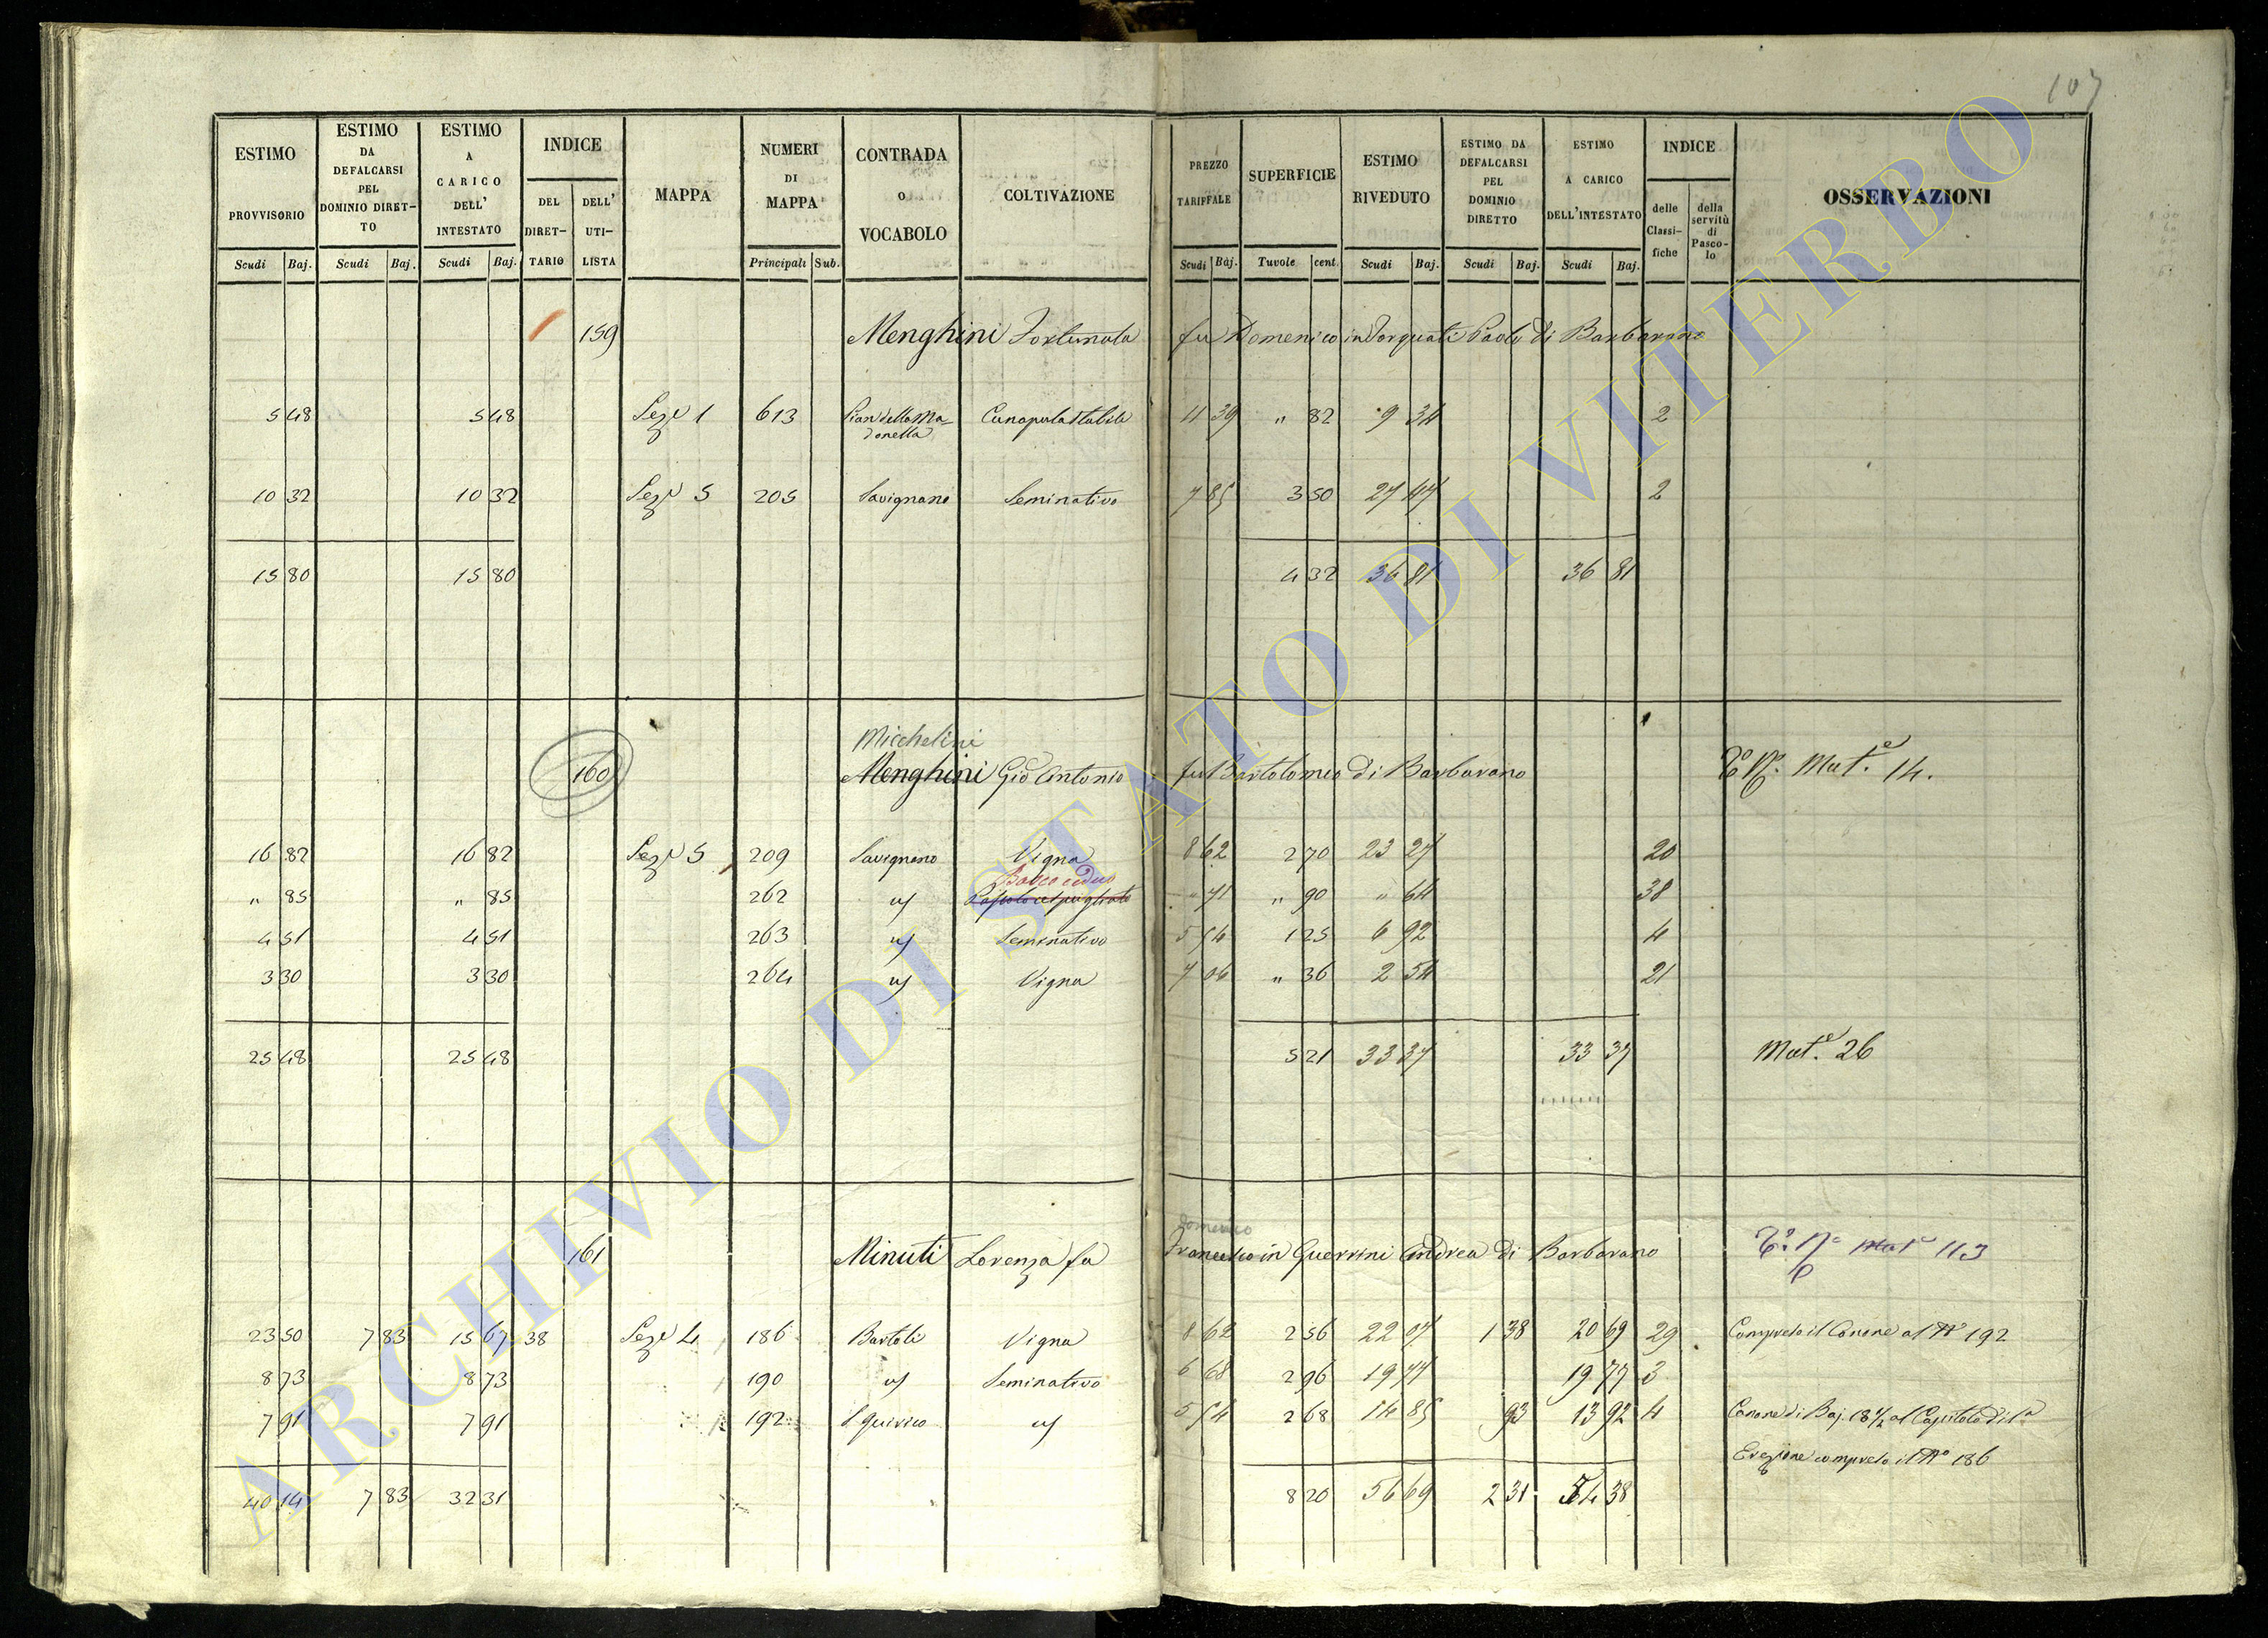 107
ESTIMO PROVVISORIO Scudi Baj. ESTIMO DA DEFALCARSI PEL DOMINIO DIRET-TO Scudi Baj. ESTIMO A CARICO DELL' INTESTATO Scudi Baj. INDICE DEL DIRET-TARIO DELL' UTI-LISTA MAPPA NUMERI DI MAPPA Principali Sub. CONTRADA o VOCABOLO COLTIVAZIONE PREZZO TARIFFALE Scudi Baj. SUPERFICIE Tavole cent. ESTIMO RIVEDUTO Scudi Baj. ESTIMO DA DEFALCARSI PEL DOMINIO DIRETTO Scudi Baj. ESTIMO A CARICO DELL'INTESTATO Scudi Baj. INDICE delle Classi-fiche della servitù di Pasco-lo OSSERVAZIONI
159 Menghini Fortunata fu Domenico in Torquati Paolo di Barbarano
5 48 5 48 Seze 1 613 Pian della Ma- Canapula stabile 11 39 " 82 9 34 2
donella
10 32 10 32 Seze 5 205 Savignano Seminativo 7 85 3 50 27 47 2
15 80 15 80 4 32 36 81 36 81
Micchelini
160 Menghini Gio Antonio fu Bartolomeo di Barbarano Mut.e 14.
16 82 16 82 Seze 5 209 Savignano Vigna 8 62 2 70 23 27 20
Bosco ceduo
" 85 " 85 262 " Pascolo cespugliato " 71 " 90 " 64 38
4 51 4 51 263 " Seminativo 5 54 1 25 6 92 4
3 30 3 30 264 " Vigna 7 06 " 36 2 54 21
25 48 25 48 5 21 33 37 33 37 Mut.e 26
Domenico
161 Minuti Lorenza fu Francesco in Guerrini Andrea di Barbarano Mut.e 113
23 50 7 83 15 67 38 Seze 4 186 Bartoli Vigna 8 62 2 56 22 07 1 38 20 69 29 Compreso il Canone al No 192
8 73 8 73 190 " Seminativo 6 68 2 96 19 77 19 77 3
7 91 7 91 192 S Quirico " 5 54 2 68 14 85 93 13 92 4 Canone di Baj. 18 1/2 al Capitolo di 1a
Erezione compreso il No 186
40 14 7 83 32 31 8 20 56 69 2 31 54 38
ARCHIVIO DI STATO DI VITERBO